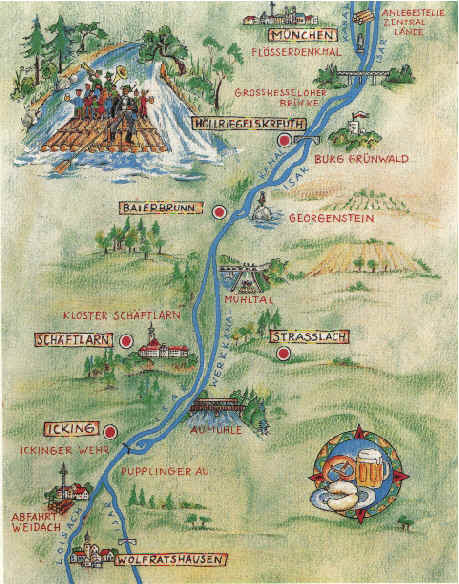 MÜNCHEN
FLÖSSERDENKMAL
KANAL
ISAR
ANLEGESTELLE
ZENTRAL
LÄNDE
GROSSHESSELOHER
BRÜCKE
HÖLLRIEGELSKREUTH
KANAL
ISAR
BURG GRÜNWALD
BAIERBRUNN
GEORGENSTEIN
MÜHLTAL
KLOSTER SCHÄFTLARN
SCHÄFTLARN
STRASSLACH
WERKKANAL
AUMÜHLE
ICKING
ICKINGER WEHR
PUPPLINGER AU
ABFAHRT
WEIDACH
LOISACH
ISAR
WOLFRATSHAUSEN